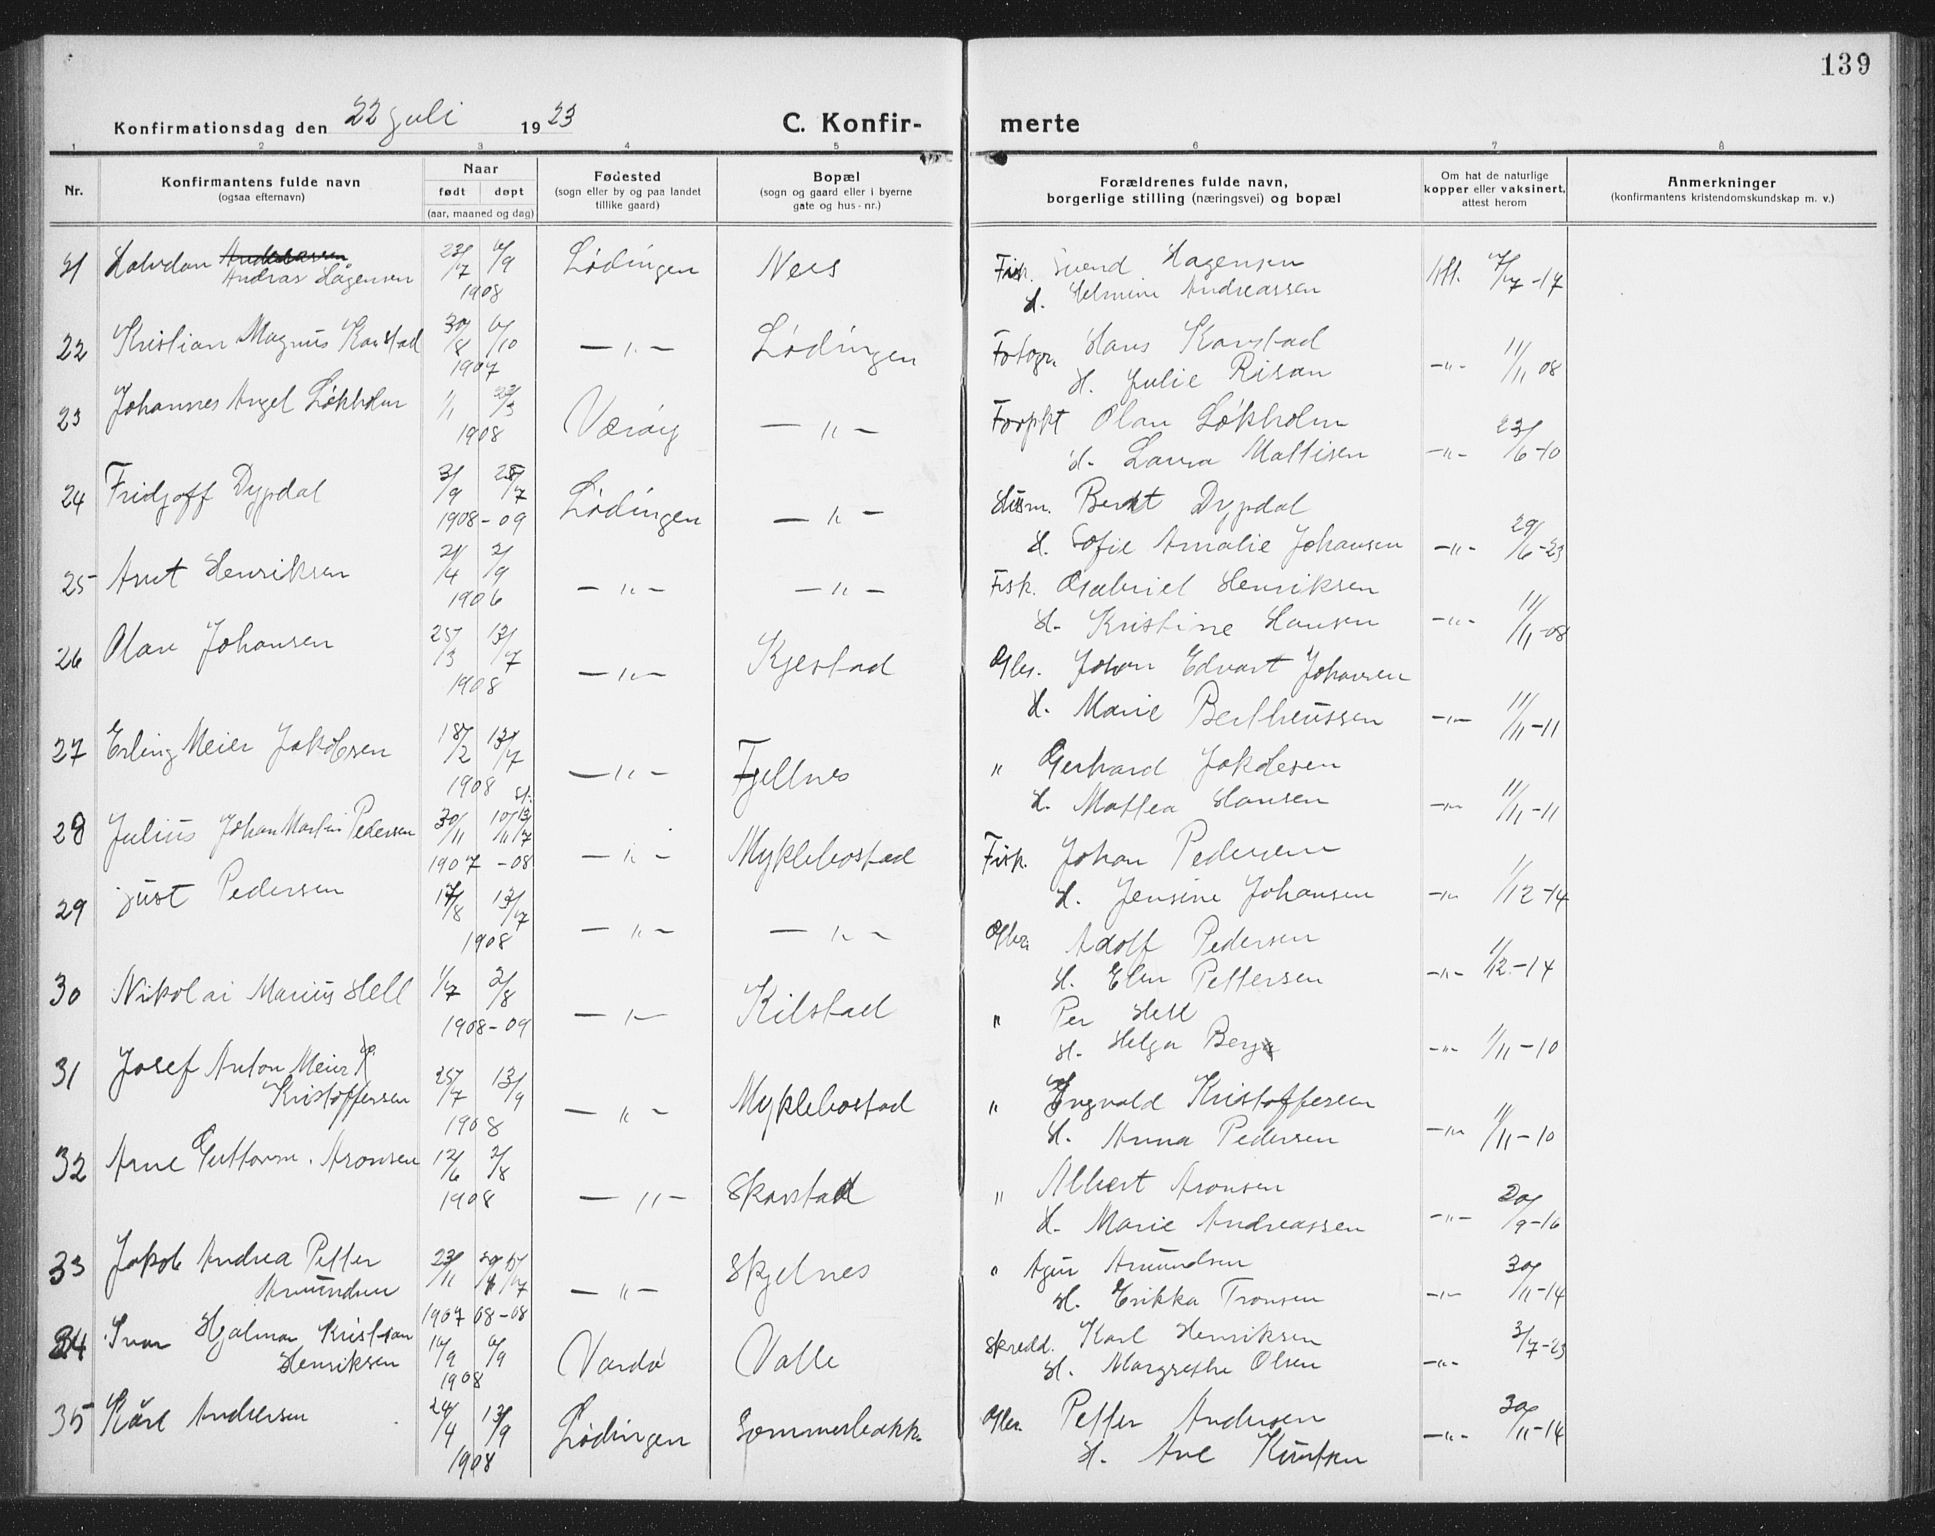 139
Konfirmationsdag den 22 juli 1923
C. Konfir- merte
1 2 3 4 5 6 7 8
Nr.
Konfirmantens fulde navn
(ogsaa efternavn)
Naar
født døpt
(aar, maaned og dag)
Fødested
(sogn eller by og paa landet
tillike gaard)
Bopæl
(sogn og gaard eller i byerne
gate og hus-nr.)
Forældrenes fulde navn,
borgerlige stilling (næringsvei) og bopæl
Om hat de naturlige
kopper eller vaksinert,
attest herom
Anmerkninger
(konfirmantens kristendomskundskap m. v.)
21 Halvdan Andreassen 23/7 6/9 Lødingen Nes Fisk. Svend Hagensen Att. 7/7-17
Andras Hagensen 1908 H. Helmine Andreassen
22 Kristian Magnus Kanstad 30/8 6/10 -"- Lødingen Fotogr. Hans Kanstad -"- 11/11 08
1907 H. Julie Risan
23 Johannes Angel Løkholm 1/1 22/3 Værøy -"- Forpkt Olav Løkholm -"- 23/6-10
1908 H. Laura Mattisen
24 Fridjoff Dypdal 3/9 28/7 Lødingen -"- Husm. Berit Dypdal
1908-09 H. Sofie Amalie Johansen -"- 29/6-23
25 Arnt Henriksen 21/4 2/9 -"- -"- Fisk. Gabriel Henriksen
1906 H. Kristine Hansen -"- 11/11-08
26 Olav Johansen 25/3 12/7 -"- Kjestad Gbr. Johan Edvart Johansen
1908 H. Marie Bertheussen -"- 11/11-11
27 Erling Meier Jakobsen 18/2 12/7 -"- Fjellnes " Gerhard Jakobsen
1908 H. Mattea Hansen -"- 11/11-11
28 Julius Johan Martin Pedersen 30/11 10/11 12/7 -"- Myklebostad Fisk. Johan Pedersen
1907 -08 H. Jensine Johansen -"- 1/12-14
29 Just Pedersen 17/8 13/7 -"- -"- Gbr. Adolf Pedersen
1908 H. Elen Pettersen -"- 1/12-14
30 Nikolai Marius Hell 1/7 2/8 -"- Kilstad " Per Hell
1908-09 H. Helga Berg -"- 1/11-10
31 Josef Anton Meier 25/7 13/9 -"- Myklebostad " Ingvald Kristoffersen
Kristoffersen 1908 H. Anna Pedersen -"- 1/11-10
32 Arne Guttorm Aronsen 12/6 2/8 -"- Skarstad " Albert Aronsen
1908 H. Marie Andreassen -"- 20/9-16
33 Jakob Andrea Petter 23/11 -"- Skjelnes " Agur Amundsen
Amundsen 1907 08-08 H. Erikka Tronsen -"- 30/11-14
34 Ivar Hjalmar Kristian 10/9 6/9 Vardø Valle Skredd. Karl Henriksen 3/7-23
Henriksen 1908 H. Margrethe Olsen -"-
35 Kåre Andersen 24/4 13/9 Lødingen Sommerbakk. Gbr. Petter Andersen 30/11-14
1908 H. Ane Knutsen -"-